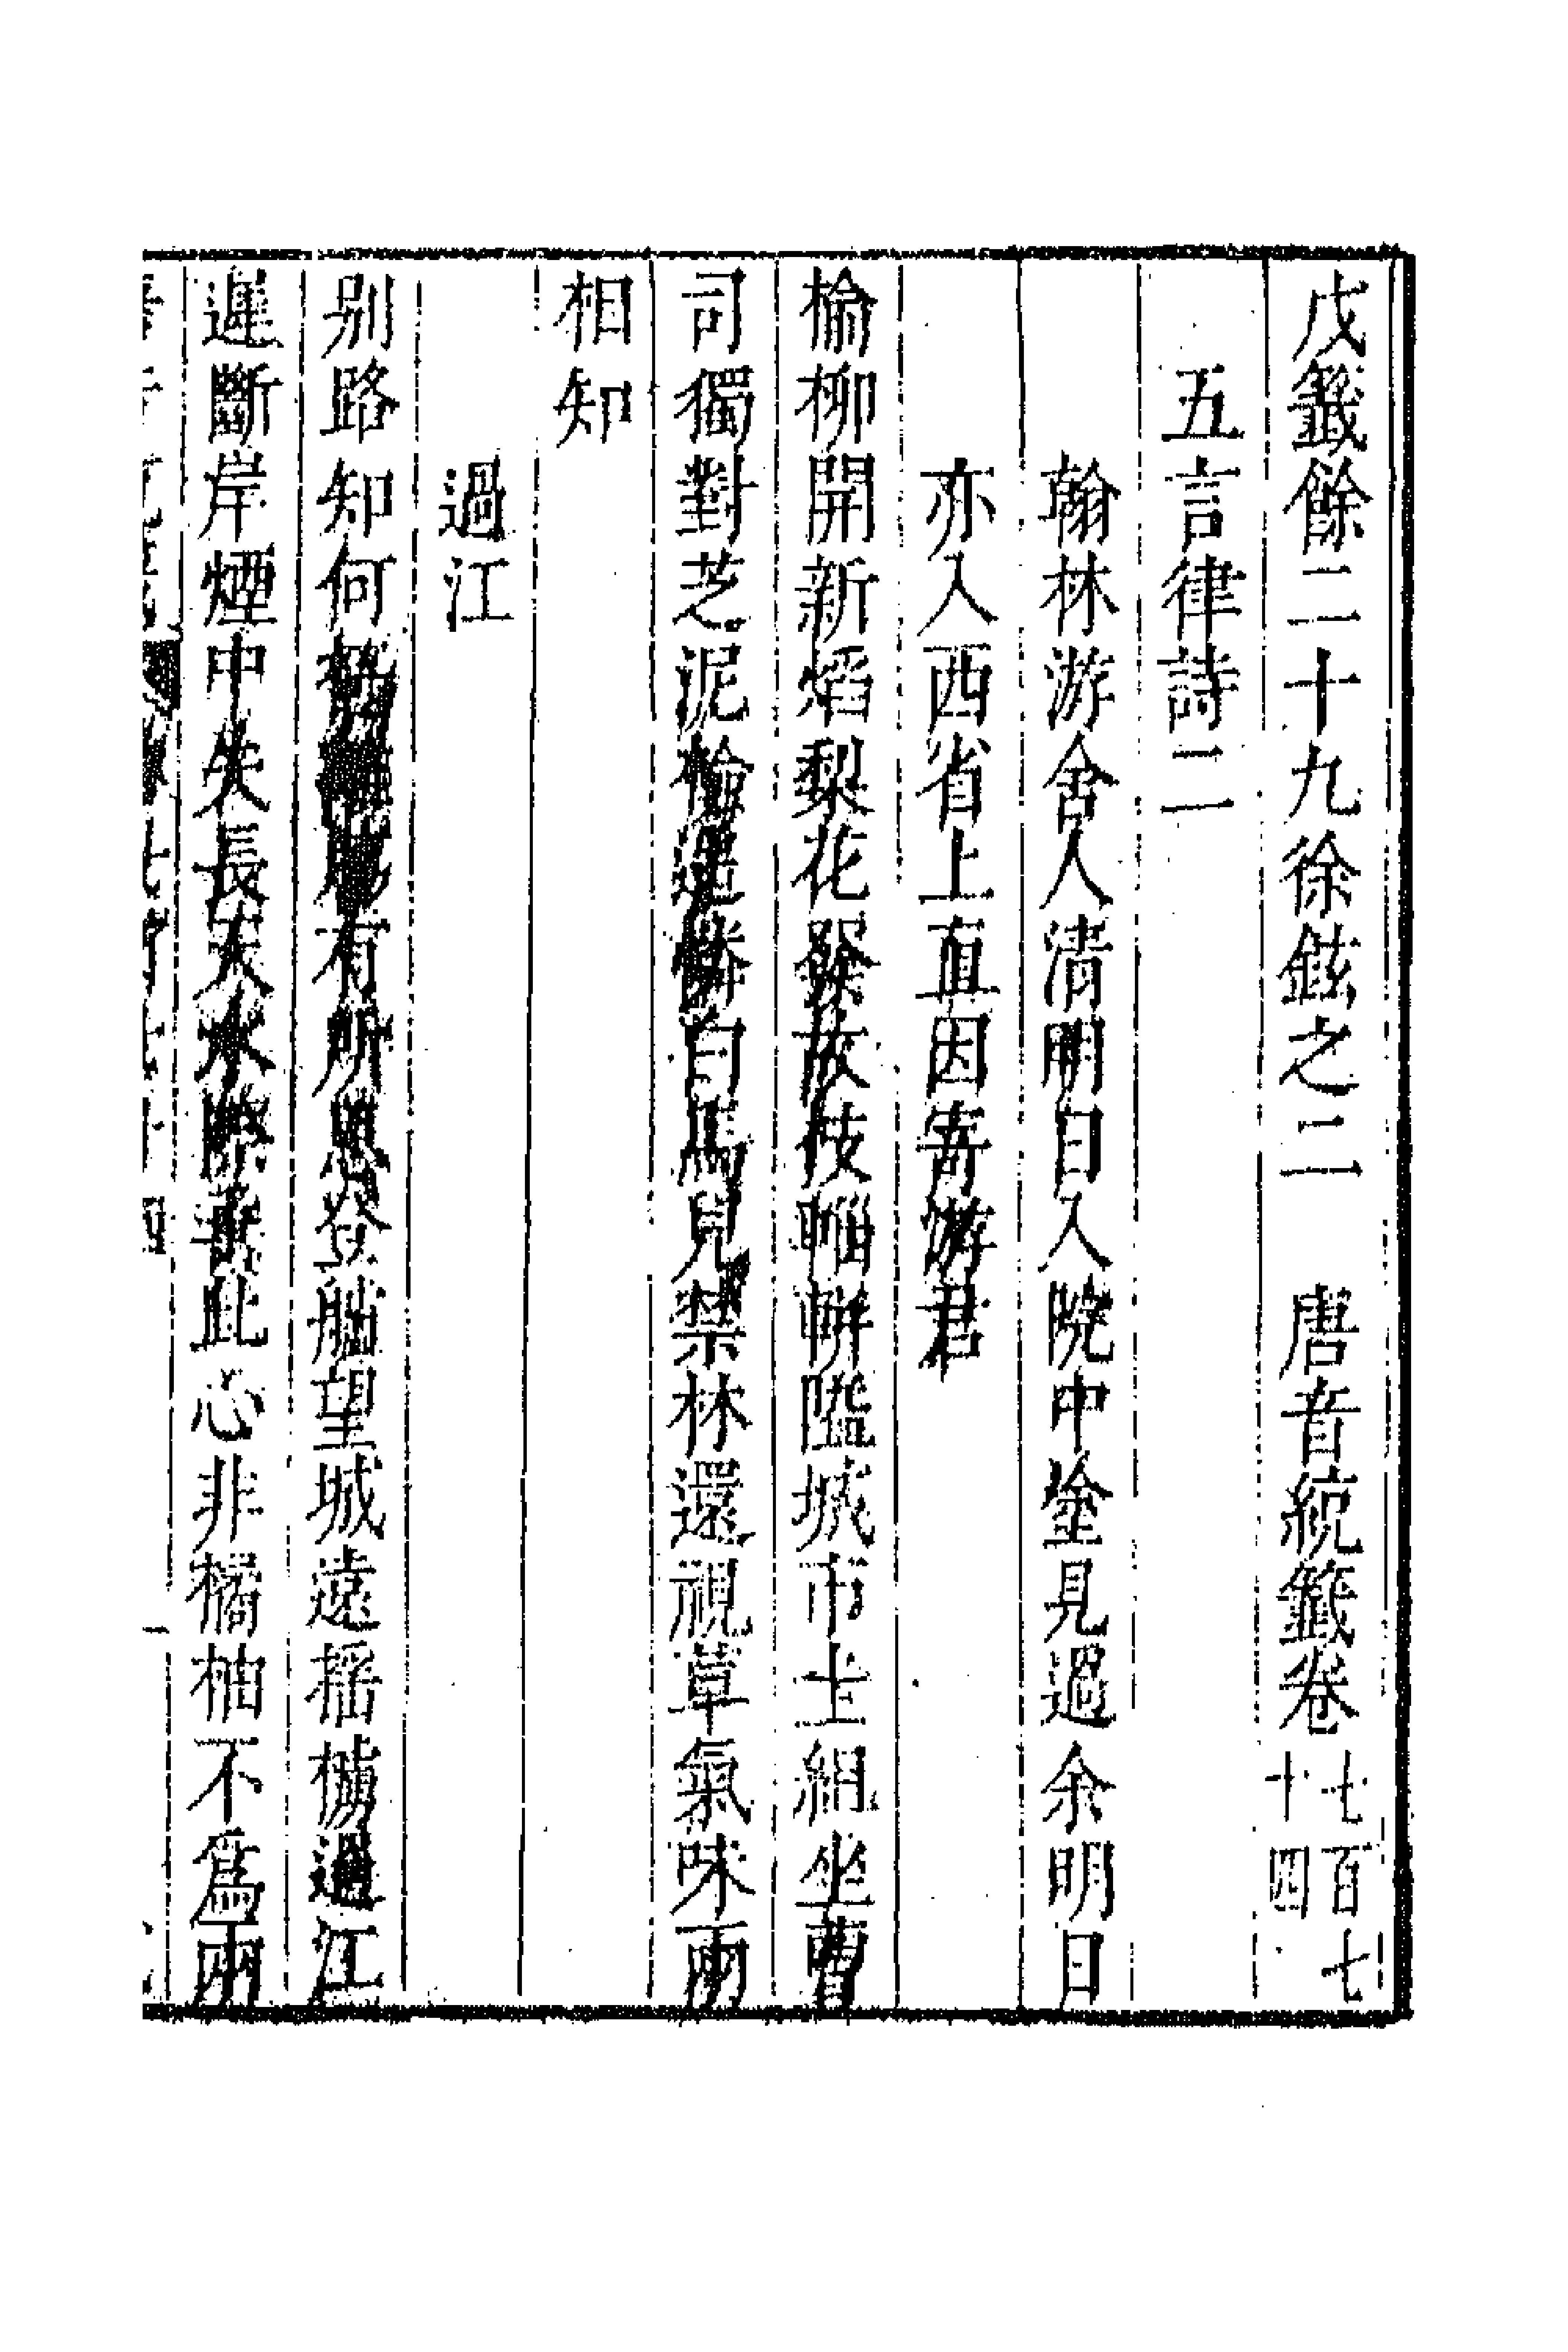 戊籖餘二十九徐鉉之二　唐音統籖卷七百七十四
五言律詩二
翰林游舍人清明日入院中塗見過余明日
亦入西省上直因寄游君
榆柳開新焰梨花發故枝輜軿隘城市圭組坐曹
司獨對芝泥檢遥憐白馬兒禁林還視草氣味兩
相知
過江
别路知何極離腸有所思登艫望城遠摇櫓過江
遲斷岸煙中失長天水際垂此心非橘柚不爲兩